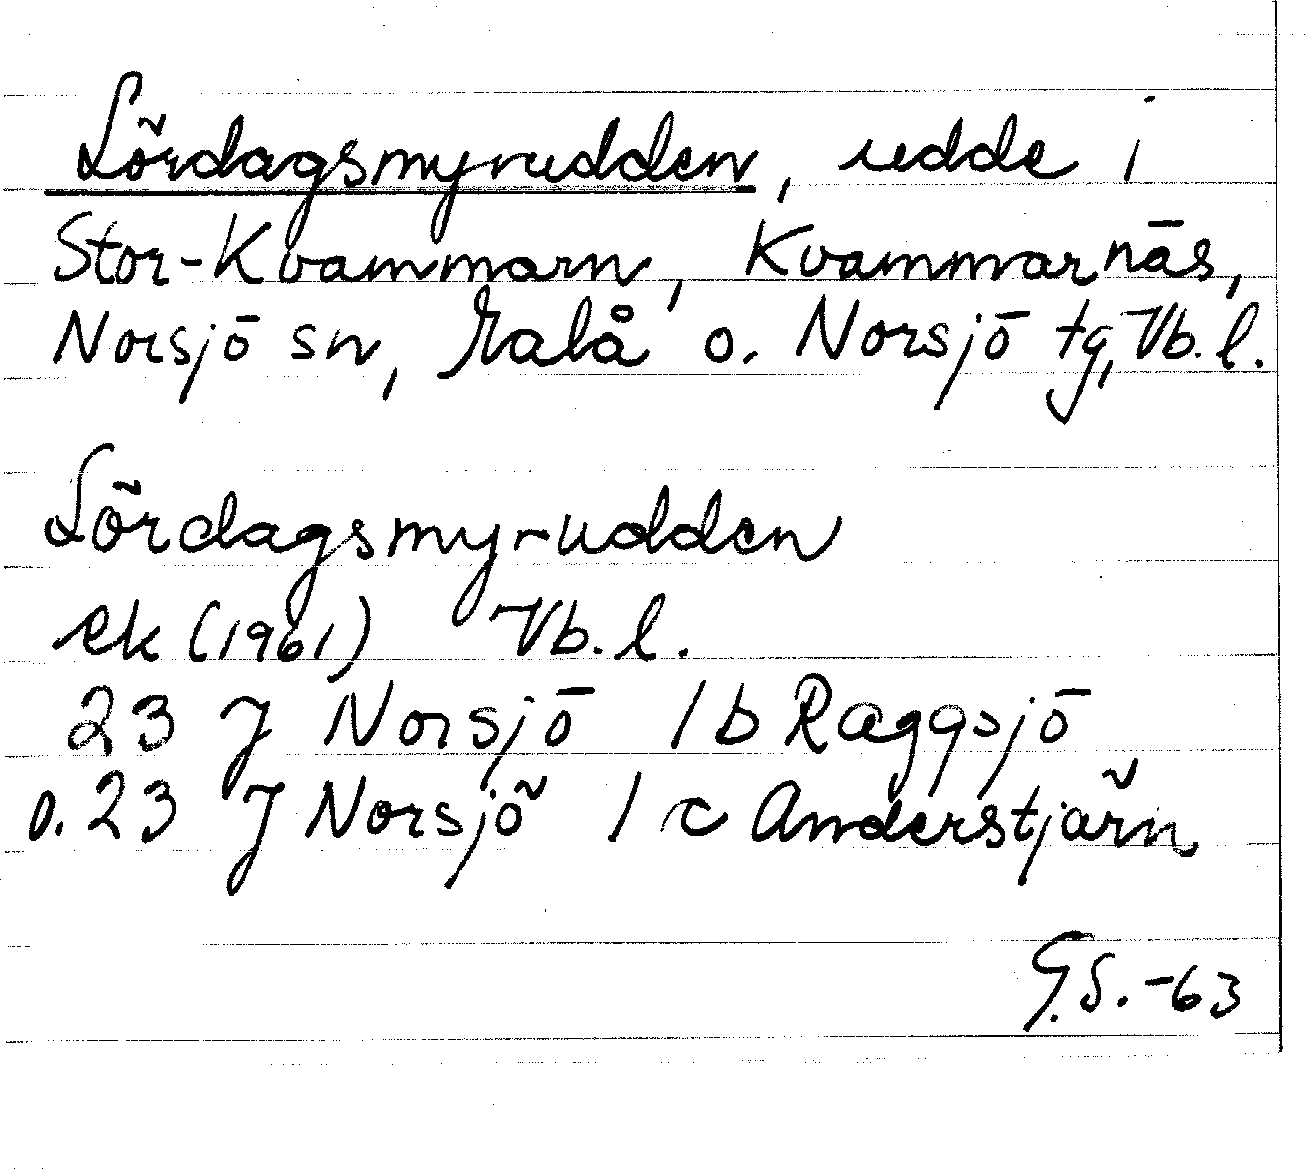 Lördagsmyrudden, udde i
Stor-Kvammarn, Kvammarnäs,
Norsjö sn, Malå o. Norsjö tg, Vb. l.
Lördagsmy-udden
ek (1961) Vb. l.
23 J Norsjö 1 b Raggsjö
o. 23 J Norsjö 1 c Anderstjärn
G.S. -63